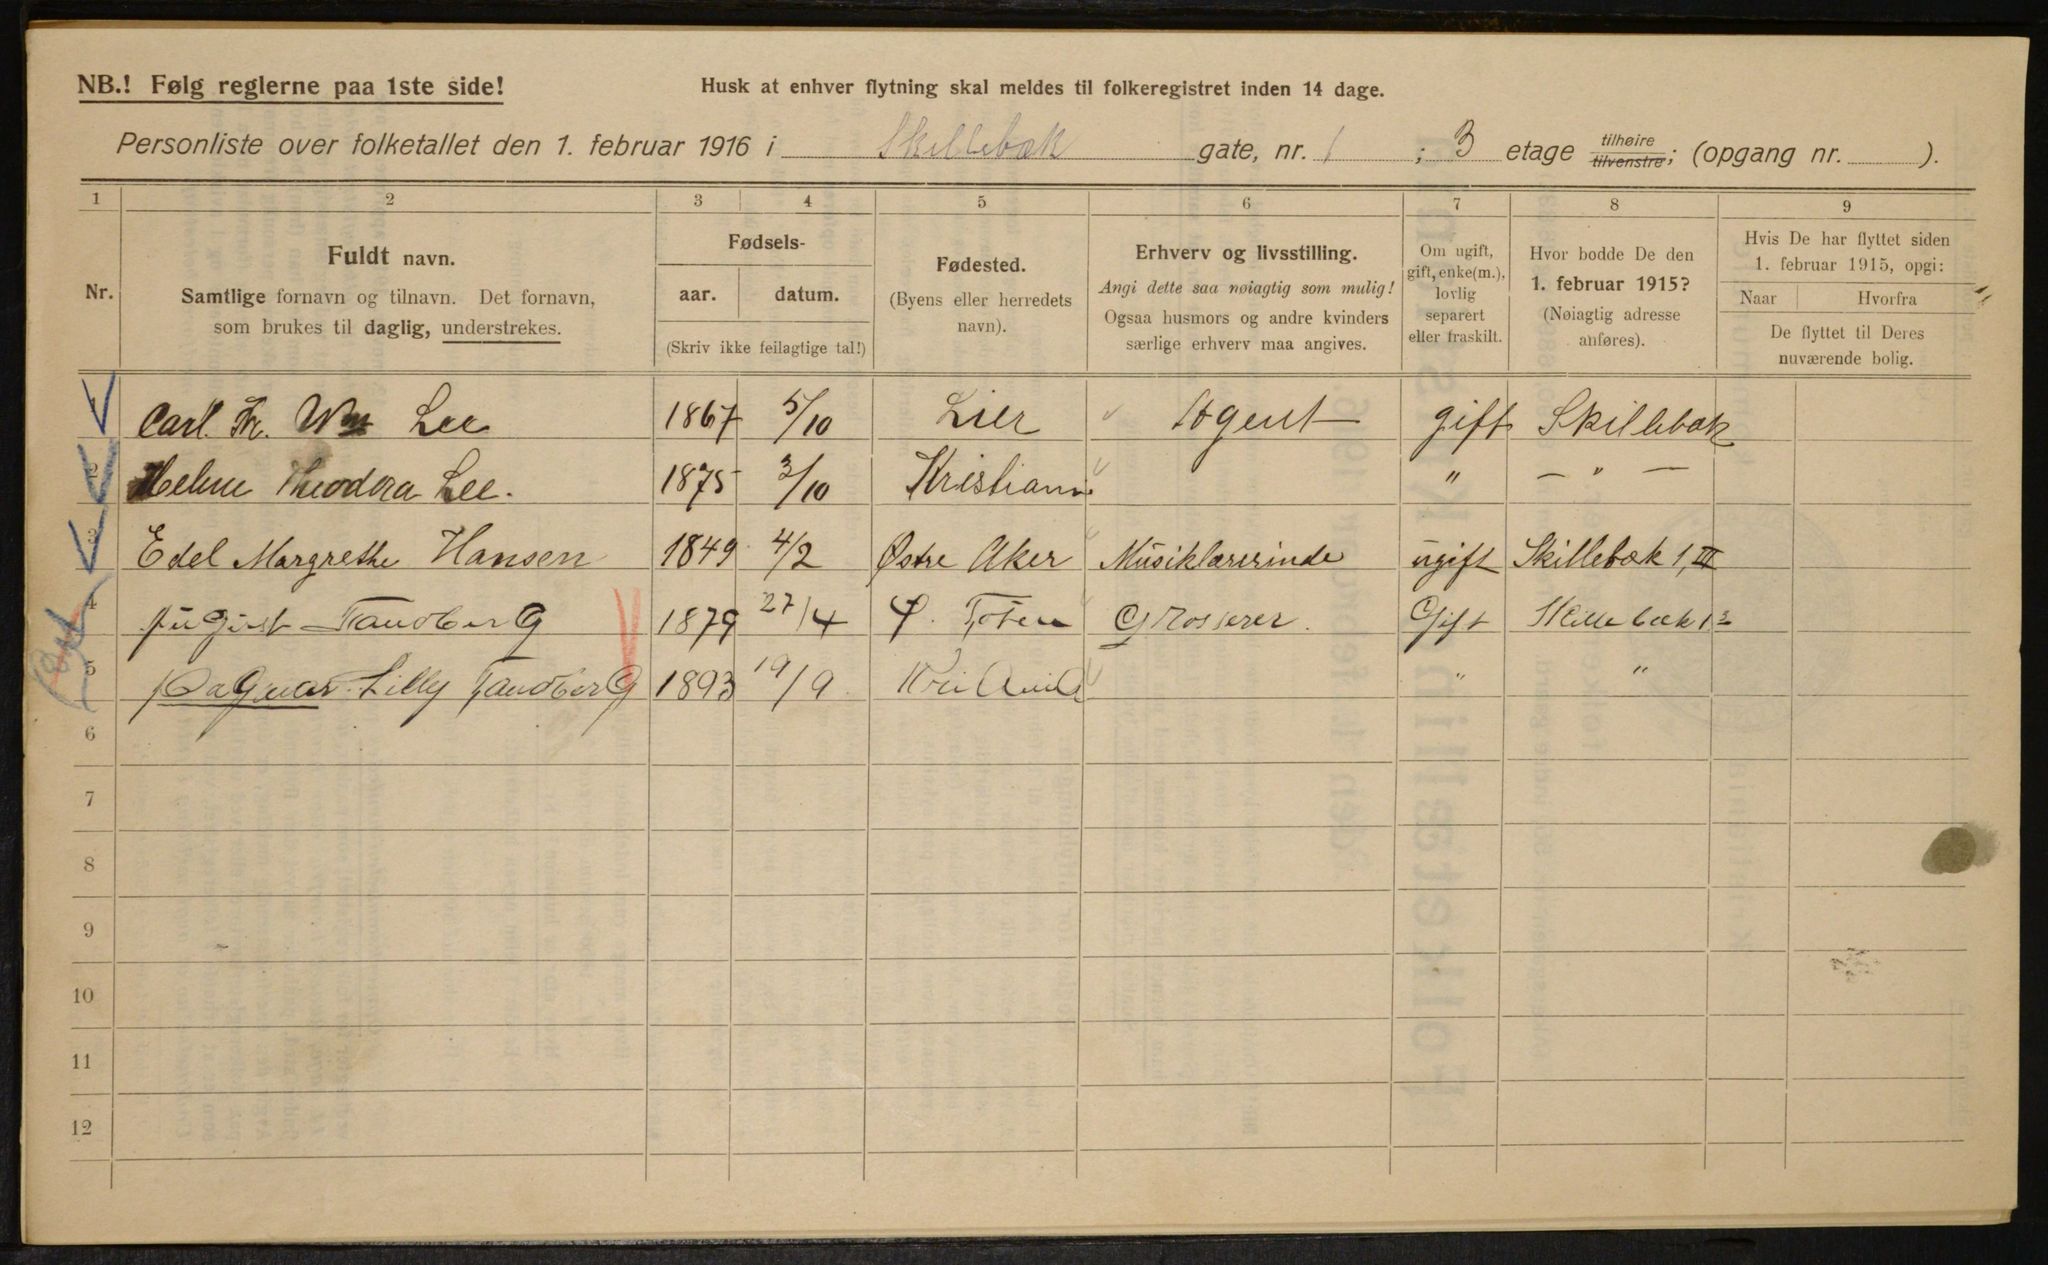 NB.! Følg reglerne paa 1ste side!
Husk at enhver flytning skal meldes til folkeregistret inden 14 dage.
Personliste over folketallet den 1. februar 1916 i Skillebæk gate, nr. 1 ; 3 etage tilhøire tilvenstre; (opgang nr. ).
1 2 3 4 5 6 7 8 9
Nr.
Fuldt navn.
Samtlige fornavn og tilnavn. Det fornavn,
som brukes til daglig, understrekes.
Fødsels-
aar. datum.
(Skriv ikke feilagtige tal!)
Fødested.
(Byens eller herredets
navn).
Erhverv og livsstilling.
Angi dette saa nøiagtig som mulig!
Ogsaa husmors og andre kvinders
særlige erhverv maa angives.
Om ugift,
gift, enke(m.),
lovlig
separert
eller fraskilt.
Hvor bodde De den
1. februar 1915?
(Nøiagtig adresse
anføres).
Hvis De har flyttet siden
1. februar 1915, opgi:
Naar Hvorfra
De flyttet til Deres
nuværende bolig.
1 Carl. Fr. Wm Lee 1867 5/10 Lier Agent gift Skillebæk
2 Helene Theodora Lee. 1875 3/10 Kristiania " — " —
3 Edel Margrethe Hansen 1849 4/2 Østre Aker Musiklærerinde ugift Skillebæk 1, III
4 August Tandberg 1879 27/4 Ø. Toten Grosserer. Gift Skillebæk 1 3
5 Dagmar Lilly Tandberg 1893 19/9 " "
6
7
8
9
10
11
12